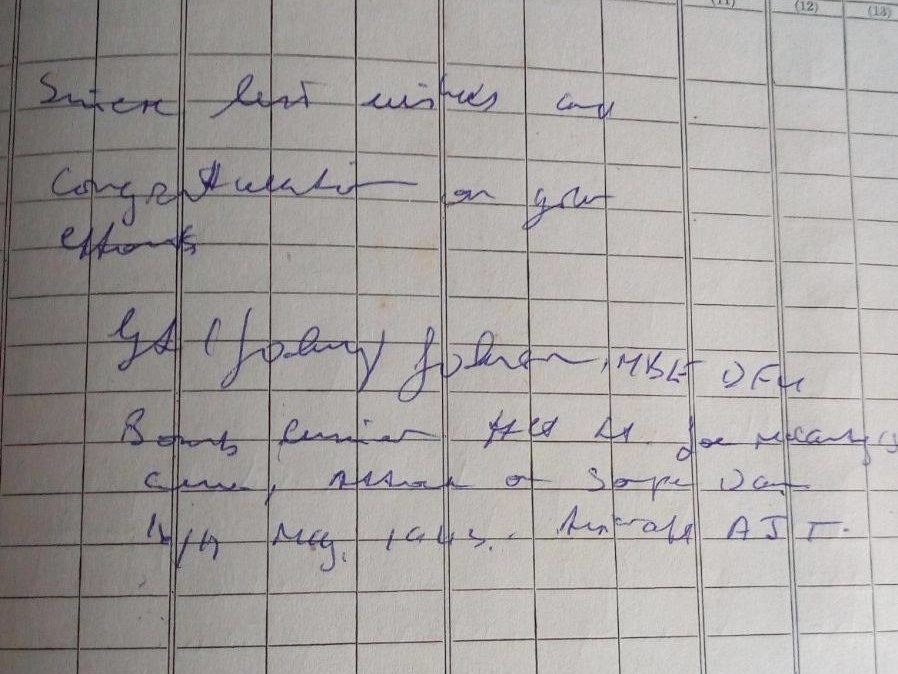 (11) (12) (13)
Sincere best wishes and
Congratulation on your
efforts
G L (Johnny) Johnson, MBE DFM
Bomb Aimer Flt Lt. Joe McCarthy's
crew, Attack on Sorpe Dam
16/17 May, 1943. Aircraft AJ T.